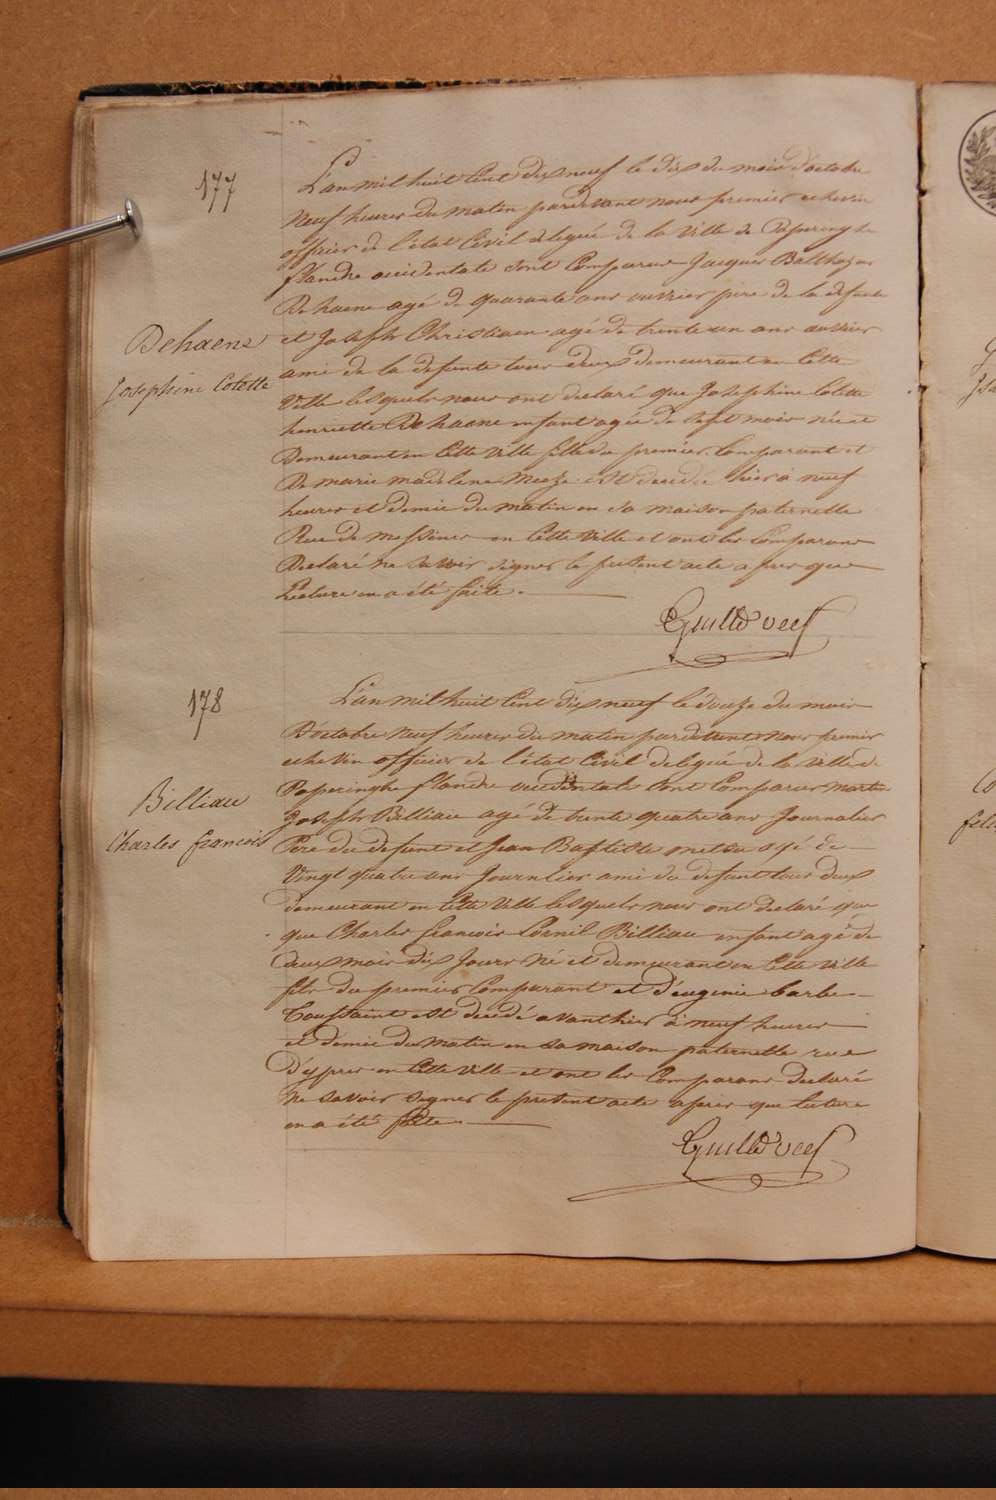 177
Dehaene
Josephine Colette
L'an mil huit Cent dix neuf le dix du mois d'octobre
neuf heures du matin pardevant nous premier echevin
officier de l'état Civil delegué de la Ville de Poperinghe
flandre occidentale sont Comparus Jacques Balthazar
Dehaene agé de quarante ans ouvrier père de la defunte
et Joseph Christiaen agé de trente un ans ouvrier
ami de la defunte tous deux demeurant en Cette
Ville lesquels nous ont declaré que Josephine Colette
henriette Dehaene enfant agée de sept mois née et
Demeurant en Cette Ville fille du premier Comparant et
De marie madelene est decedée hier à neuf
heures et demie du matin en sa maison paternelle
Rue de Messines en Cette Ville et ont les Comparans
Declaré ne savoir signer le present acte apres que
Lecture en a été faite.
178
Billiau
Charles francois
L'an mil huit Cent dix neuf le douze du mois
D'octobre neuf heures du matin pardevant nous premier
echevin officier de l'état Civil delegué de la Ville de
Poperinghe flandre occidentale sont Comparus martin
Joseph Billiau agé de trente quatre ans Journalier
Pere du defunt et Jean Baptiste agé de
Vingt quatre ans Journlier ami du defunt tous deux
demeurant en Cette Ville lesquels nous ont declaré que
que Charles francois Cornil Billiau enfant agé de
deux mois dix Jours né et demeurant en Cette Ville
fils du premier Comparant et d'eugenie barbe
Toussaint est decedé avanthier à neuf heures
et demie du matin en sa maison paternelle rue
D'ypres en Cette Ville et ont les Comparans Declaré
ne savoir signer le present acte apres que lecture
en a été faite.